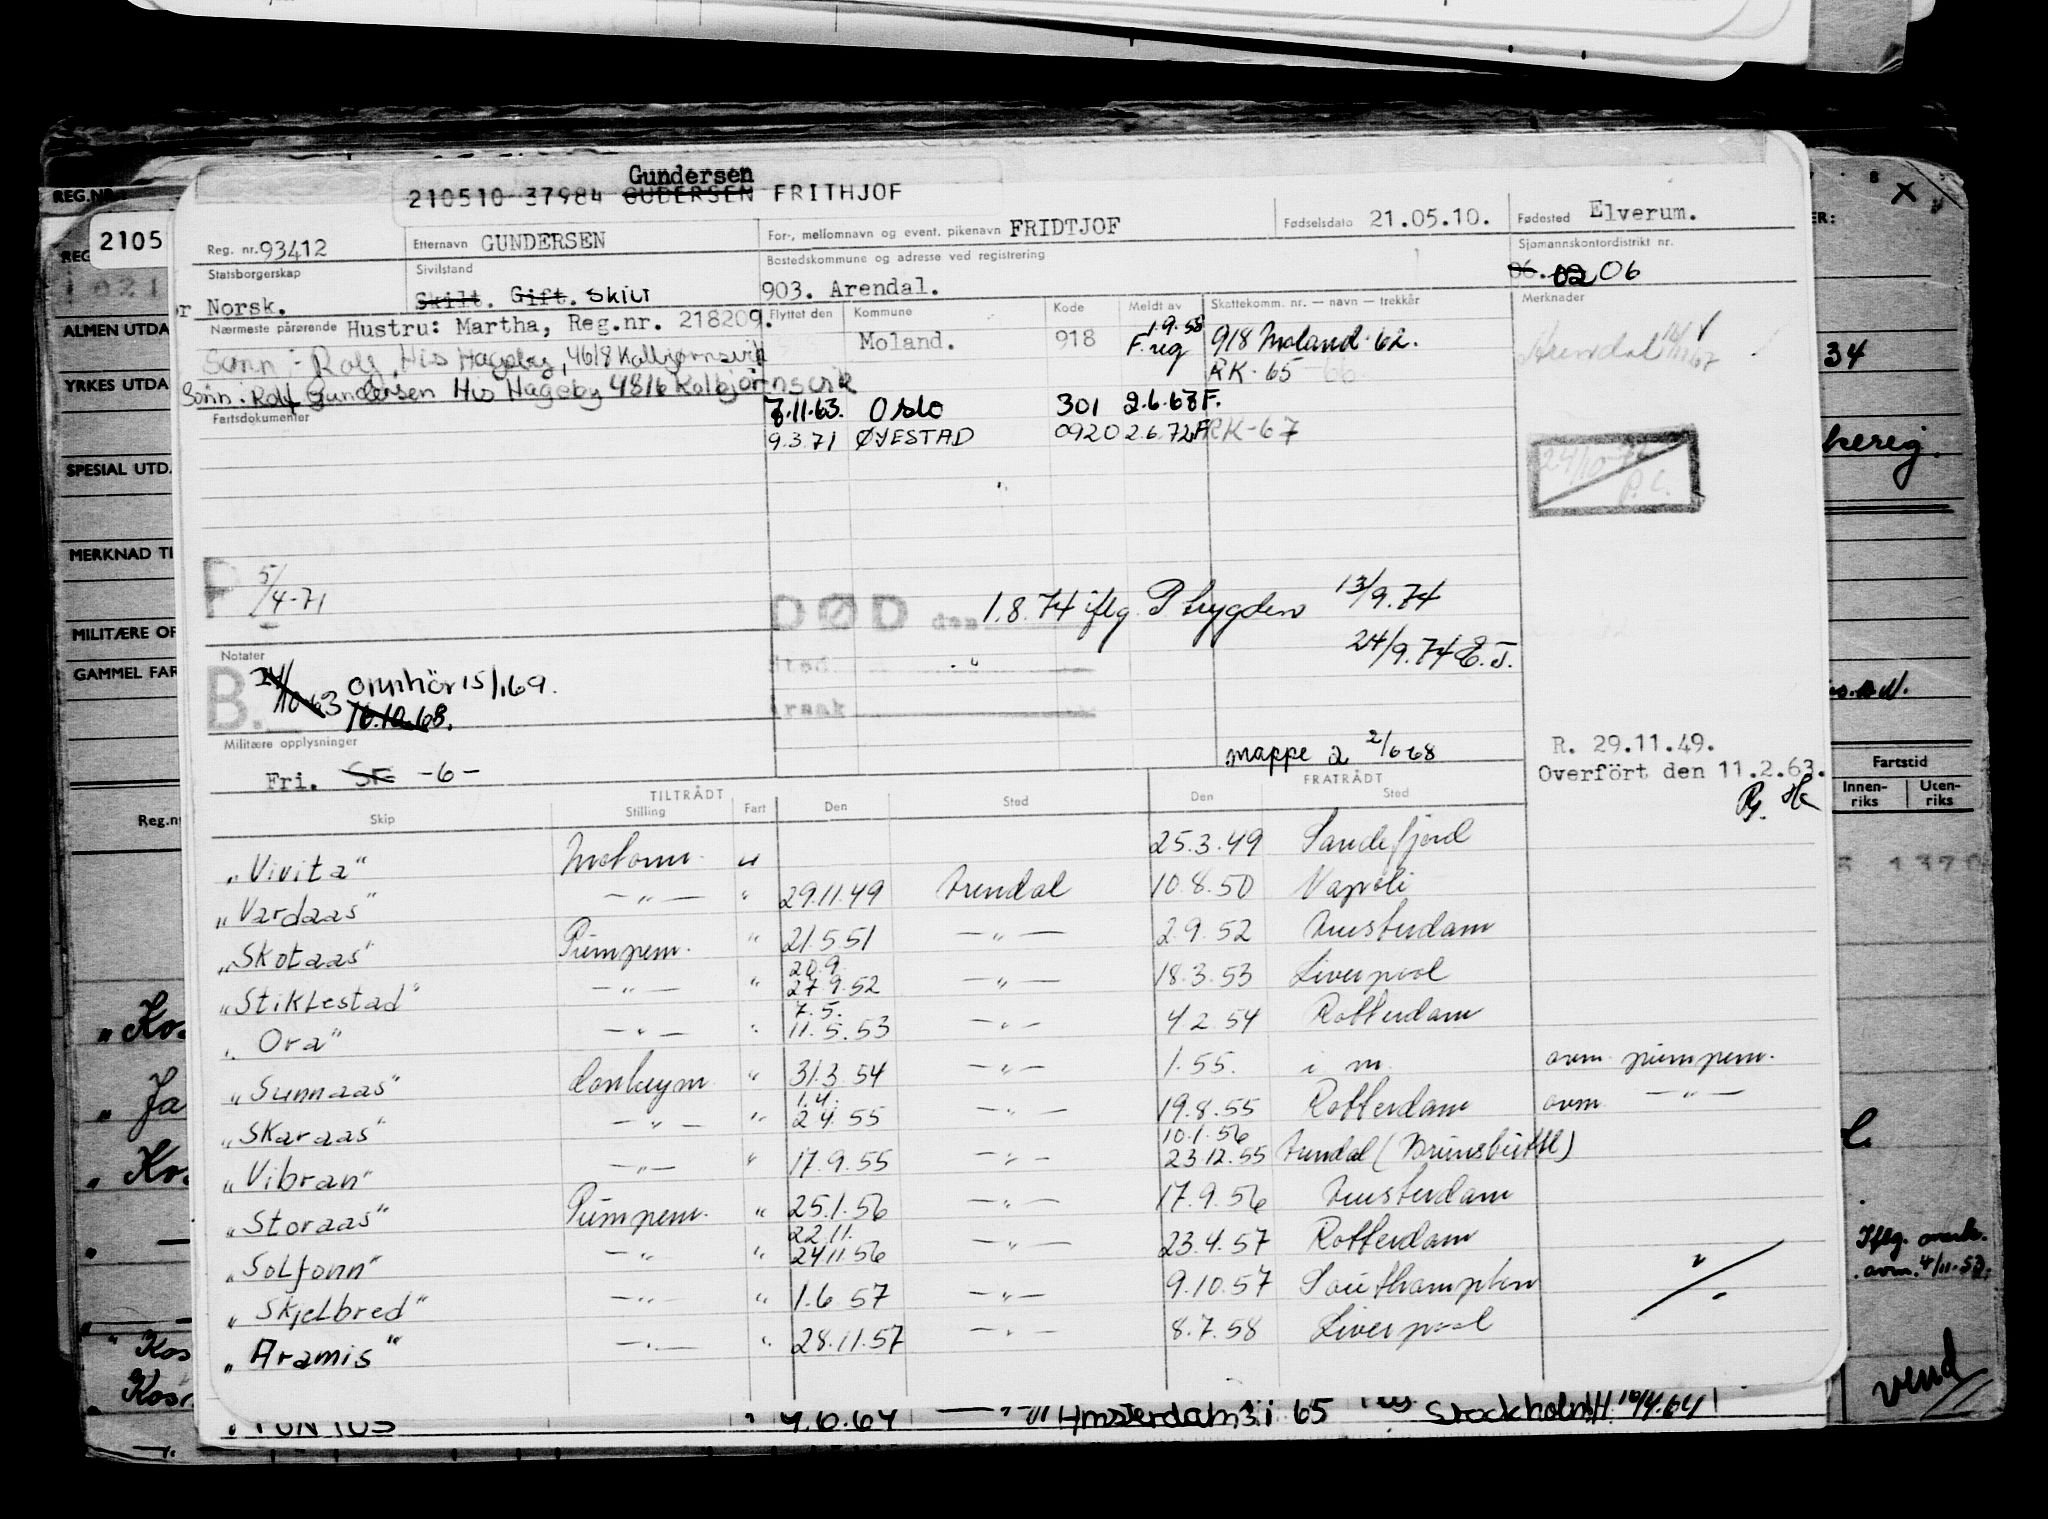 Gundersen
210510 37984 GUDERSEN FRITHJOF
Reg. nr. 93412 Etternavn GUNDERSEN For-, mellomnavn og event. pikenavn FRIDTJOF Fødselsdato 21.05.10. Fødested Elverum.
Statsborgerskap Norsk. Sivilstand Skilt. Gift. Skilt Bostedskommune og adresse ved registrering 903. Arendal. Sjømannskontordistrikt nr. 06. 02 06
Nærmeste pårørende Hustru: Martha, Reg.nr. 218209. Flyttet den Kommune Kode Meldt av Skattekomm. nr. — navn — trekkår Merknader
Moland. 918 1.9.58 F.reg 918 Moland 62. Arendal
Sønn: Rolf, His Hageby, 4618 Kolbjørnsvik RK-65 66
Sønn: Rolf Gundersen His Hageby 4816 Kolbjørnsvik
Fartsdokumenter 7.11.63. Oslo 301 2.6.67 F.
9.3.71 ØYESTAD 0920 2.6.72 F RK-67
24/10
P 5/4-71
DØD den 1.8.74 iflg. P trygden 13/9.74
Sted 24/9.74 E.T.
Årsak
Notater
B. omhör 15/1 69.
16.10.68.
Militære opplysninger
Fri. -6-
mappe 2 2/6 68
R. 29.11.49.
Overfört den 11.2.63.
TILTRÅDT FRATRÅDT
Skip Stilling Fart Den Sted Den Sted
"Vivita" Motorm. u 25.3.49 Sandefjord
"Vardaas" —"— " 29.11.49 Arendal 10.8.50 Napoli
"Skotaas" Pumpem. " 21.5.51 —"— 2.9.52 Amsterdam
"Stiklestad" —"— " 20.9. 27.9.52 —"— 18.3.53 Liverpool
"Ora" —"— " 7.5. 11.5.53 —"— 4.2.54 Rotterdam
"Sunnaas" Donkeym. " 31.3.54 —"— 1.55. i m. avm. pumpem.
"Skaraas" —"— " 1.4. 2.4.55 —"— 19.8.55 Rotterdam avm —"—
"Vibran" —"— " 17.9.55 —"— 10.1.56 23.12.55 Arendal (Brunsbüttel)
"Storaas" Pumpem. " 25.1.56 —"— 17.9.56 Amsterdam
"Solfonn" —"— " 22.11. 24.11.56 —"— 23.4.57 Rotterdam
"Skjelbred" —"— " 1.6.57 —"— 9.10.57 Southampton
"Aramis" —"— " 28.11.57 —"— 8.7.58 Liverpool
PONTOS 4.6.64 —"— Amsterdam 3.i 65 Stockholm 10/4.64
REG.NR.
2105
ALMEN UTDA
YRKES UTDA
SPESIAL UTD.
MERKNAD TI
MILITÆRE OP
GAMMEL FAR
Reg.nr
"Ko
"Ja
"Ko
"Kos
Kos
8 X
ER:
34
Fartstid
Innen-riks Uten-riks
Iflg. merk.
avm. 4/11.53.
vend